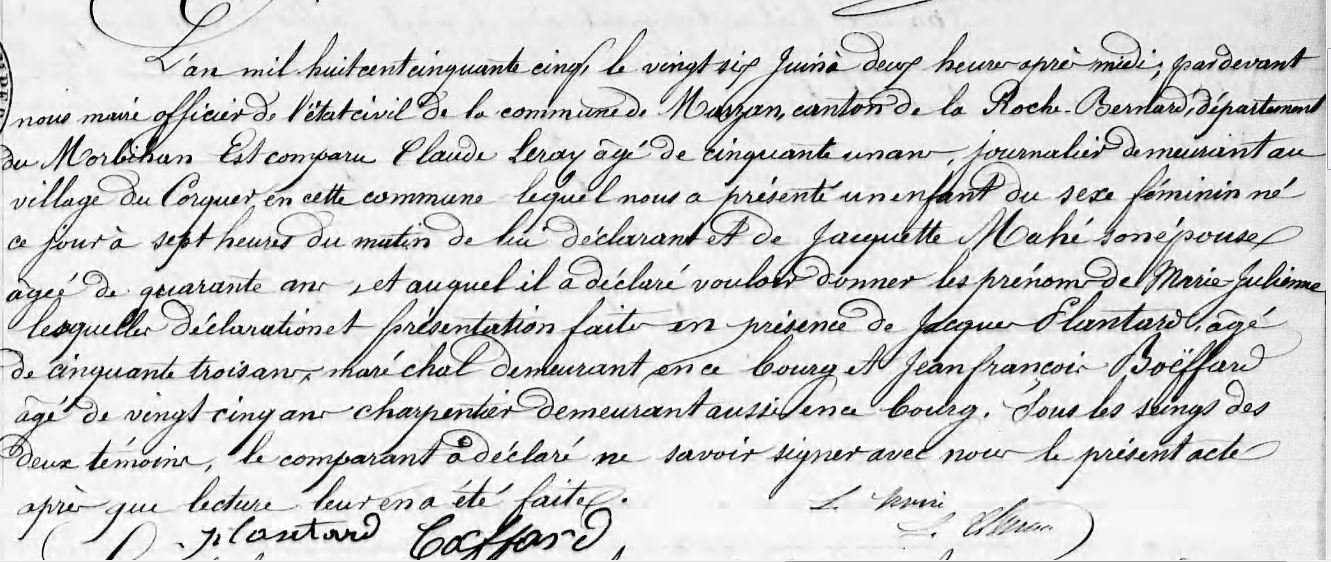 L'an mil huit cent cinquante cinq, le vingt six Juin à deux heures après midi; pardevant
nous maire officier de l'état civil de la commune de Marzan, canton de la Roche-Bernard, département
du Morbihan Est comparu Claude Leray âgé de cinquante un ans, journalier demeurant au
village du Corquer, en cette commune lequel nous a présenté un enfant du sexe féminin né
ce jour à sept heures du matin de lui déclarant et de Jacquette Mahé son épouse
âgée de quarante ans, et auquel il a déclaré vouloir donner les prénoms de Marie-Julienne
lesquelles déclaration et présentation faites en présence de Jacques Plantard, âgé
de cinquante trois ans, maréchal demeurant en ce bourg et Jean françois Boëffard
âgé de vingt cinq ans charpentier demeurant aussi en ce bourg. Sous les seings des
deux témoins, le comparant a déclaré ne savoir signer avec nous le présent acte
après que lecture leur en a été faite.
Plantard Boëffard